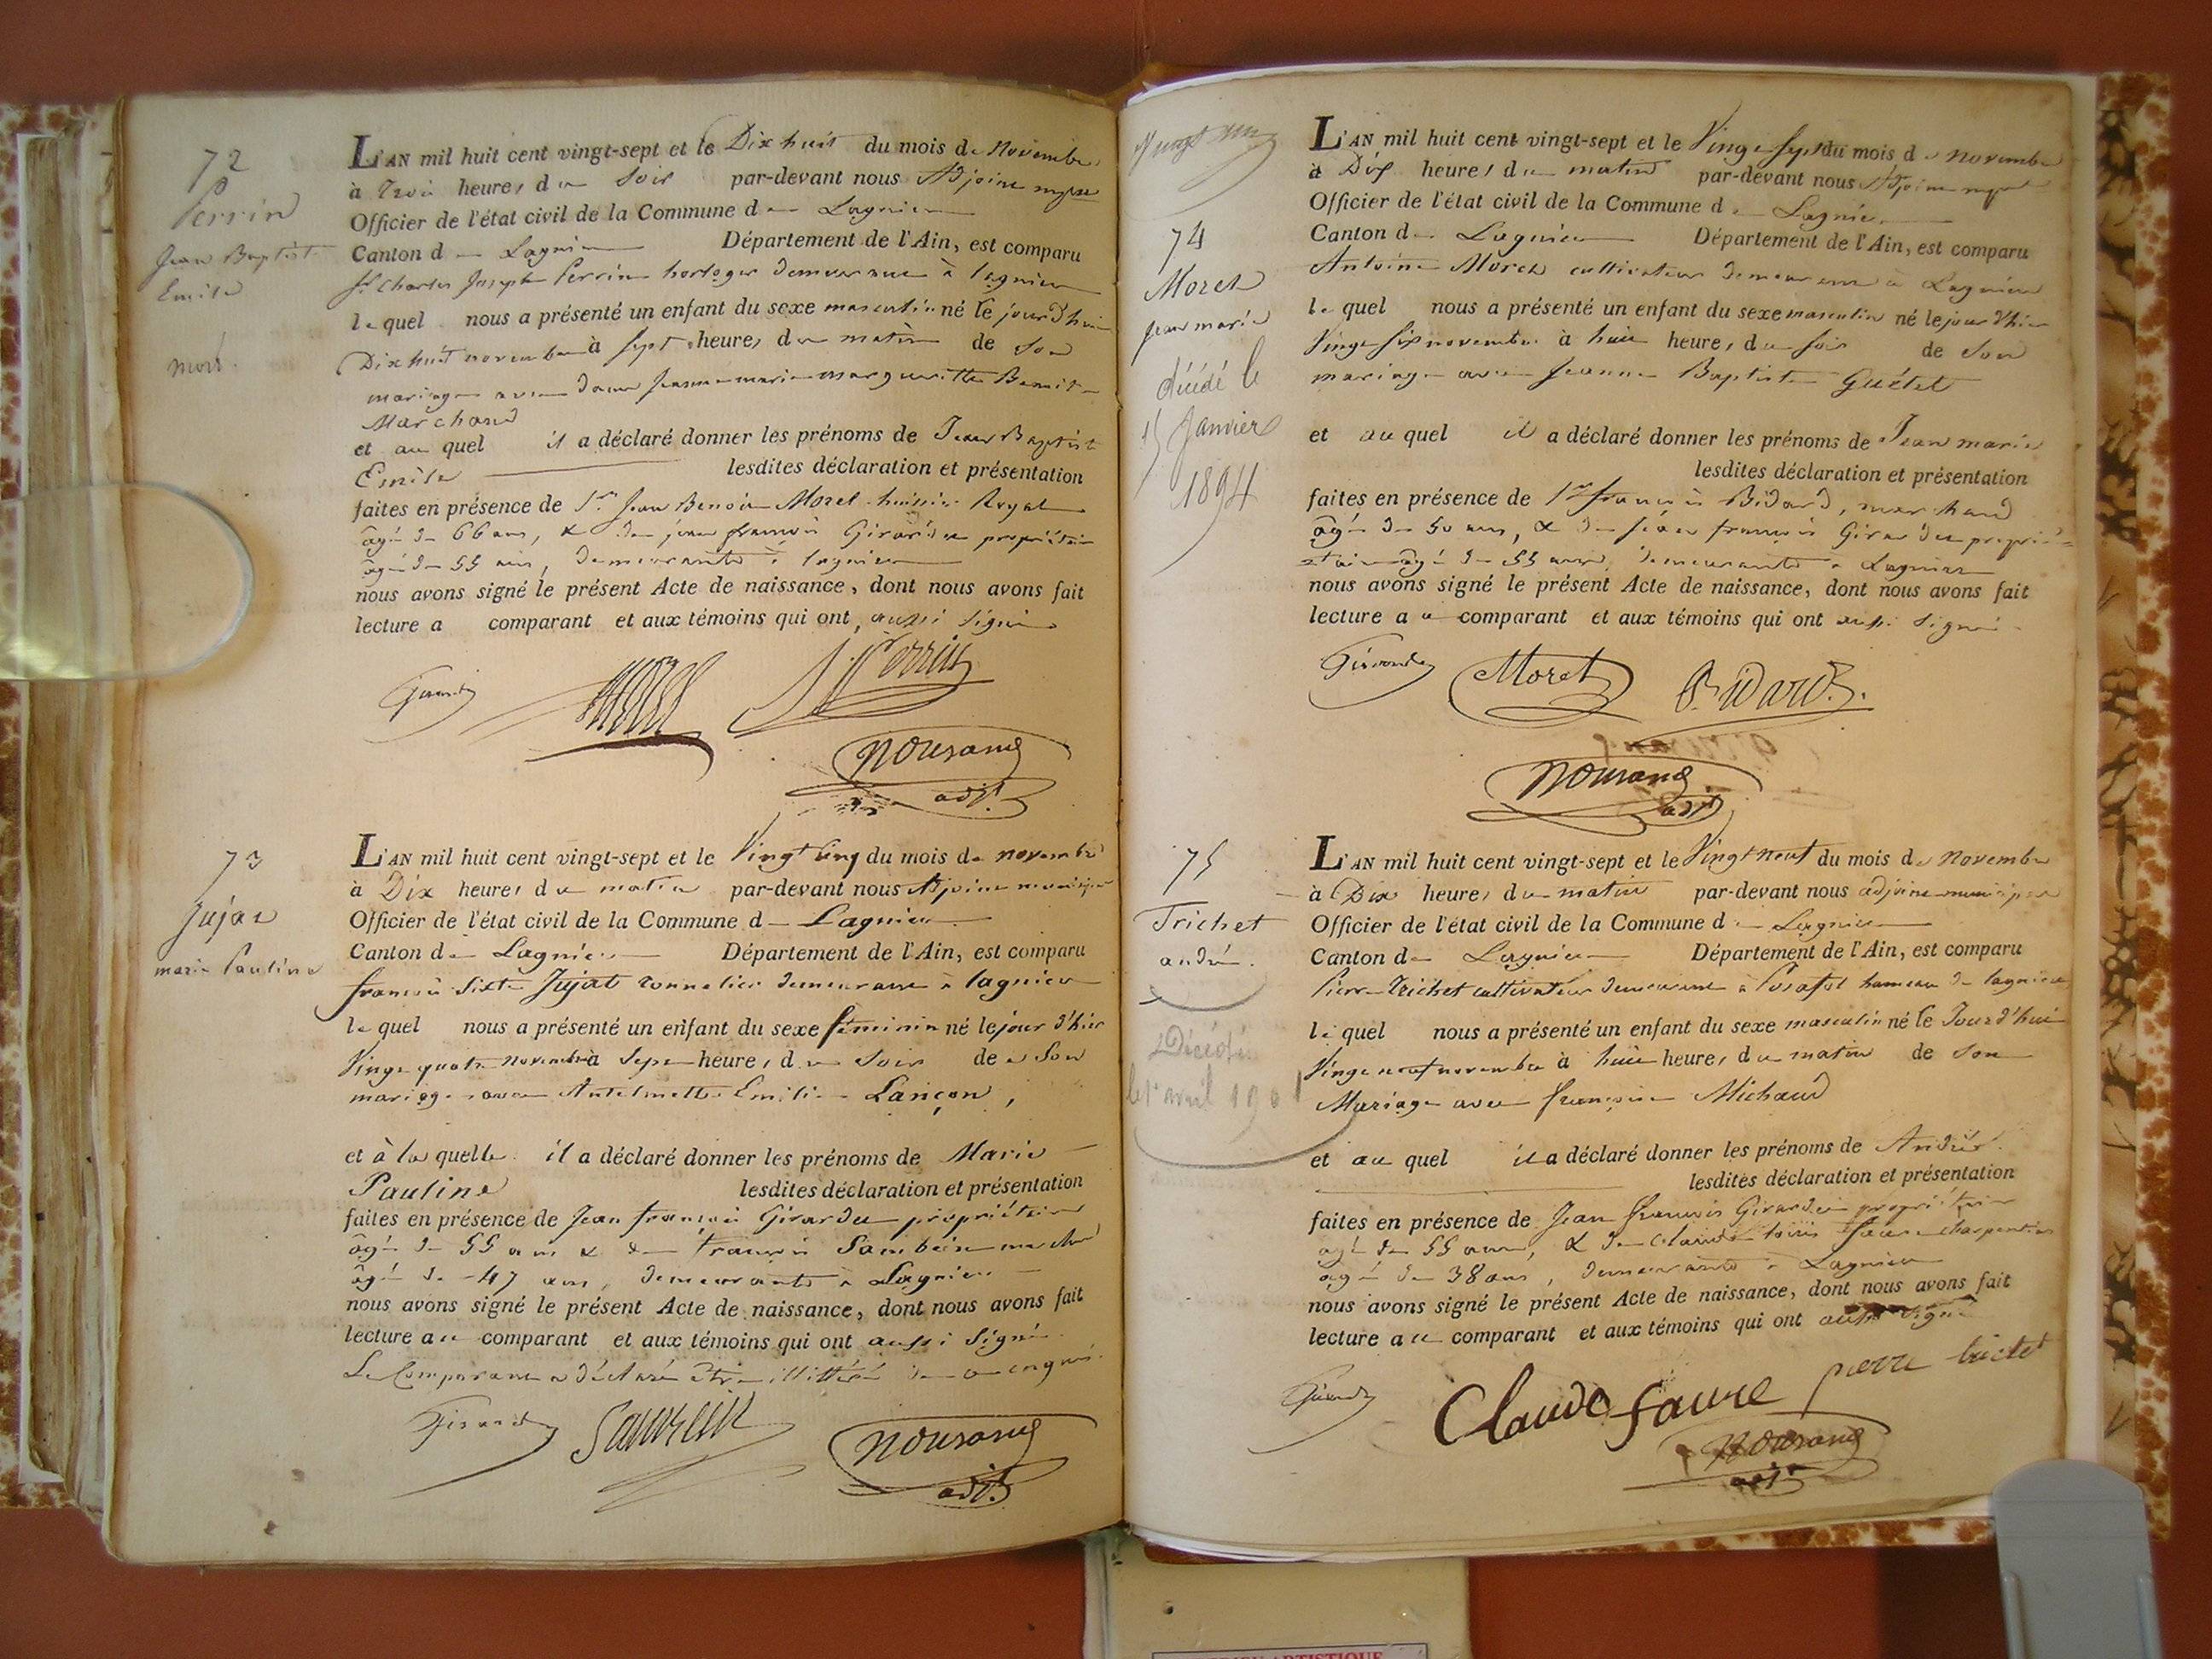 72
Perrin
Jean Baptiste
Emile
mort.
L'AN mil huit cent vingt-sept et le Dix huit du mois de novembre
à trois heures du soir par-devant nous Adjoint
Officier de l'état civil de la Commune de Lagnieu
Canton de Lagnieu Département de l'Ain, est comparu
Sr Charles Joseph Perrin horloger demeurant à lagnieu
lequel nous a présenté un enfant du sexe masculin né le jourd'hui
Dix huit novembre à sept heures du matin de son
mariage avec dame Jeanne marie margueritte Benoite
Marchand
et au quel il a déclaré donner les prénoms de Jean Baptiste
Emile lesdites déclaration et présentation
faites en présence de Sr. Jean Benoit Morel huissier Royal
âgé de 66 ans, & de jean françois Girardu propriétaire
âgé de 55 ans, demeurants à lagnieu
nous avons signé le présent Acte de naissance, dont nous avons fait
lecture a comparant et aux témoins qui ont aussi signé
Girardu Morel Perrin
Nourang
adjt.
73
Jujat
marie Pauline
L'AN mil huit cent vingt-sept et le Vingt cinq du mois de novembre
à Dix heures du matin par-devant nous Adjoint municipal
Officier de l'état civil de la Commune de Lagnieu
Canton de Lagnieu Département de l'Ain, est comparu
françois Sixte Jujat tonnelier demeurant à lagnieu
lequel nous a présenté un enfant du sexe féminin né le jour d'hier
Vingt quatre novembre à sept heures du soir de son
mariage avec Antelmette Emilie Lançon,
et à la quelle il a déclaré donner les prénoms de Marie
Pauline lesdites déclaration et présentation
faites en présence de Jean françois Girardu propriétaire
âgé de 55 ans & de françois marchand
âgé de 47 ans, demeurants à Lagnieu
nous avons signé le présent Acte de naissance, dont nous avons fait
lecture au comparant et aux témoins qui ont aussi signé.
Le Comparant a déclaré être illitéré de ce enquis.
Girardu
Nourang
adjt.
74
Moret
Jean marie
décédé le
15 Janvier
1894
L'AN mil huit cent vingt-sept et le Vingt sept du mois de novembre
à Dix heures du matin par-devant nous Adjoint
Officier de l'état civil de la Commune de Lagnieu
Canton de Lagnieu Département de l'Ain, est comparu
Antoine Moret cultivateur demeurant à Lagnieu
lequel nous a présenté un enfant du sexe masculin né le jour d'hier
Vingt six novembre à huit heures du soir de son
mariage avec Jeanne Baptiste Guétet
et au quel il a déclaré donner les prénoms de Jean marie
lesdites déclaration et présentation
faites en présence de Sr françois Bidard, marchand
âgé de 50 ans, & de jean françois Girardu proprié=
=taire âgé de 55 ans, demeurants à Lagnieu
nous avons signé le présent Acte de naissance, dont nous avons fait
lecture au comparant et aux témoins qui ont aussi signé
Girardu Moret Bidard
Nourang
adjt
75
Trichet
andré.
Décédé
le 1r avril 1901
L'AN mil huit cent vingt-sept et le Vingt neuf du mois de novembre
à Dix heures du matin par-devant nous adjoint municipal
Officier de l'état civil de la Commune de Lagnieu
Canton de Lagnieu Département de l'Ain, est comparu
Pierre Trichet cultivateur demeurant à Posafol hameau de lagnieu
lequel nous a présenté un enfant du sexe masculin né le Jourd'hui
Vingt neuf novembre à huit heures du matin de son
Mariage avec françoise Michaud
et au quel il a déclaré donner les prénoms de André.
lesdites déclaration et présentation
faites en présence de Jean françois Girardu propriétaire
agé de 55 ans, & de Claude faure charpentier
agé de 38 ans, demeurants à Lagnieu
nous avons signé le présent Acte de naissance, dont nous avons fait
lecture au comparant et aux témoins qui ont aussi signé
Girardu Claude faure pierre trichet
Nourang
adjt